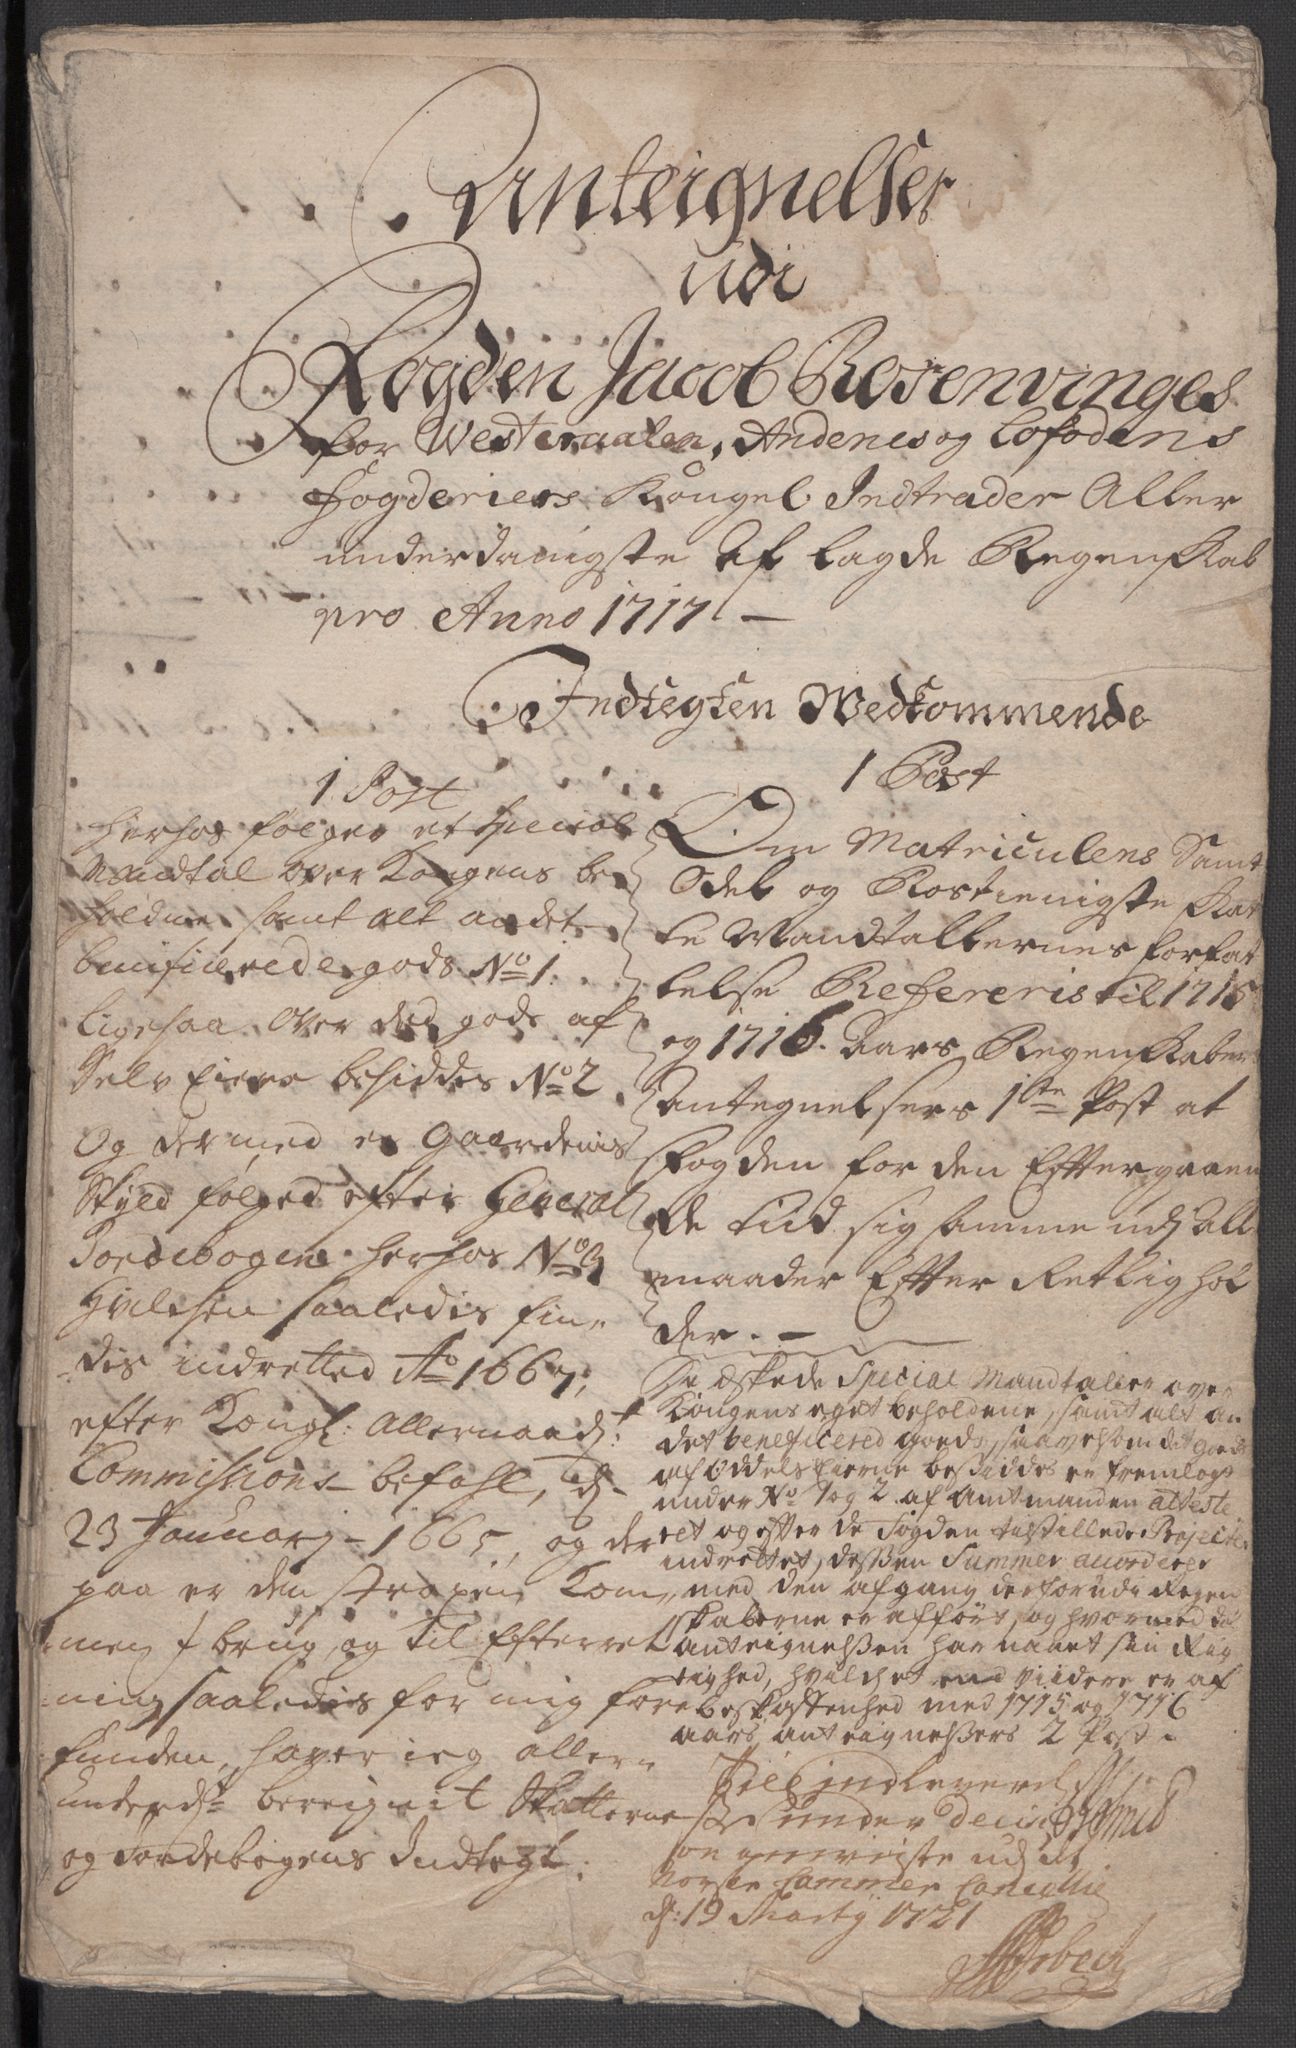 Anteignelser
udi
Fogden Jacob Rosenvinges
for Westeraalen, Andenes og Lofodens
fogderiers Kongel. Indtrader Aller
underdanigste Af lagde Regenskab
pro Anno 1717 —
Indtegten Wedkommende
1 Post
herhos følger et special
Mandtal over Kongens be
holdne samt alt andet
benificerede gods No 1.
Ligesaa over ded gods af
Selv Eiere besiddes No 2
Og dermed er Gaardenis
Skyld følged efter General
Jordebogen herhos No 3
Hvilchen saaledis fin
dis indretted Ao 1667,
efter Kongl: Allernaadt:
Commissions befahl, d.
23 Januarj 1665, og der
paa er den strapen Kom
men j brug, og til Efterret
ning saaledis for mig fore
funden, haver ieg aller
underdt beregnit Skatterne
og Jordebogens Indtegt.
1 Post
Om Matriculens Samt
Odel og Rostienigste Skat
te Mandtallernes forfat
telse Refereris til 1715
og 1716. Aars Regenskaber
Antegnelsers 1te Post at
Fogden for den Efftergaaen
de tiid sig samme udj All
maader Effter Retlig hol
der. —
De æskede Special Mandtaller over
Kongens eget beholdene, samt alt an
det beneficered goeds, saavelsom det goeds
af Oddels Eierne besiddes er fremlagt
under No 1 og 2 af Amtmanden atteste
ret og efter de Fogden tilstillede Projecter
indrettet, deßen Summer accorderer
med den afgang derfor udi Regen
skaberne er afførs, og hvormed da
anteignelßen har naaet sin Rig
tighed, hvilchet end viidere er af
beskaffenhed med 1715 og 1716
aars anteignelßers 2 Post.
Till indleverelse
under decis
ion anviiste udj det
Norske Cammer Cancellie
d: 19 Marty 1721